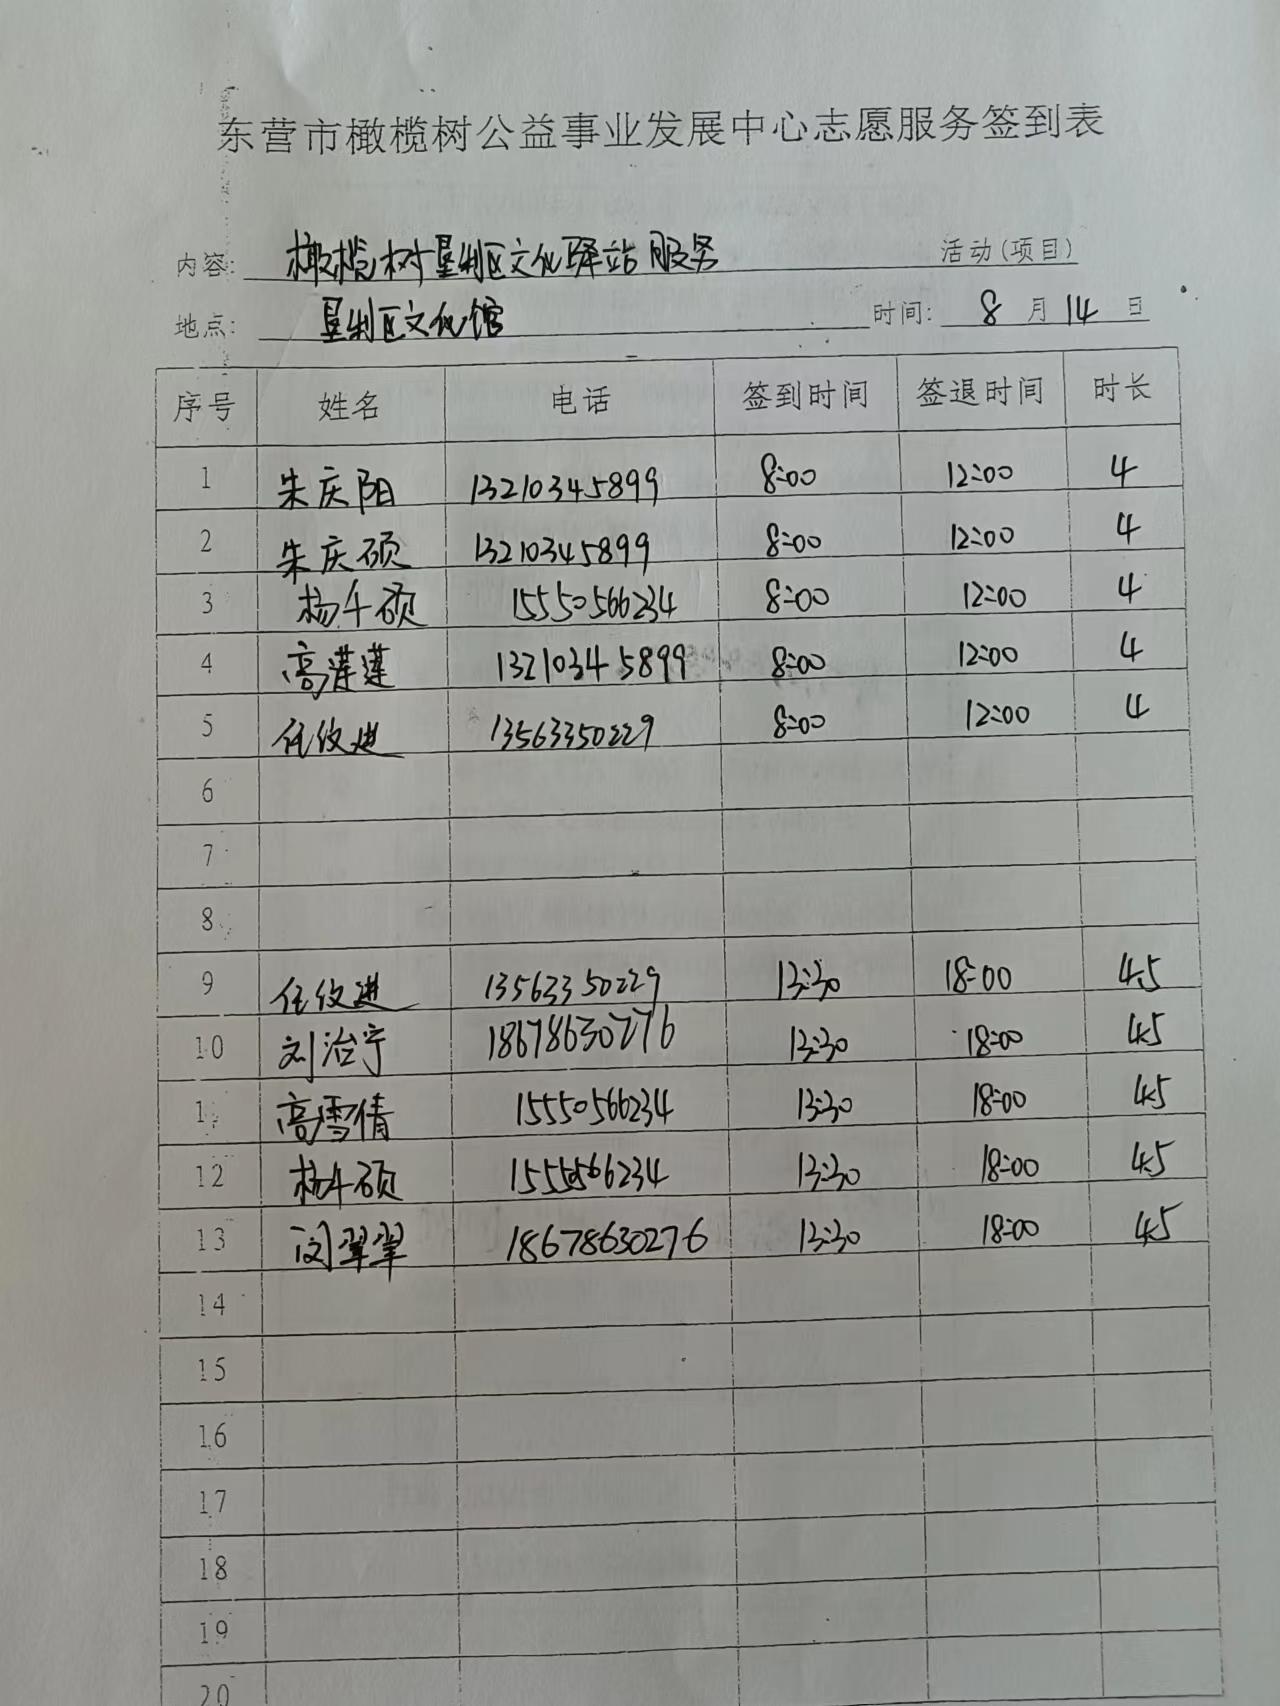 东营市橄榄树公益事业发展中心志愿服务签到表
内容: 橄榄树垦利区文化驿站服务 活动(项目)
地点: 垦利区文化馆 时间: 8 月 14 日
序号 姓名 电话 签到时间 签退时间 时长
1 朱庆阳 13210345899 8:00 12:00 4
2 朱庆硕 13210345899 8:00 12:00 4
3 杨千硕 15550566234 8:00 12:00 4
4 高莲莲 13210345899 8:00 12:00 4
5 任纹进 13563350229 8:00 12:00 4
6
7
8
9 任纹进 13563350229 13:30 18:00 4.5
10 刘治宁 18678630276 13:30 18:00 4.5
1 高雪倩 15550566234 13:30 18:00 4.5
12 杨千硕 13:30 18:00 4.5
13 闵翠翠 18678630276 13:30 18:00 4.5
14
15
16
17
18
19
20